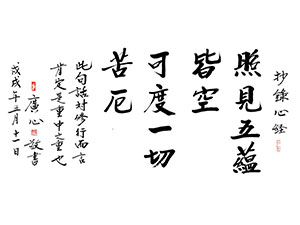 抄錄心經
照見五蘊
皆空
可度一切
苦厄
此句話對修行而言
肯定是重中之重也
廣心敬書
戊戌年三月十一日